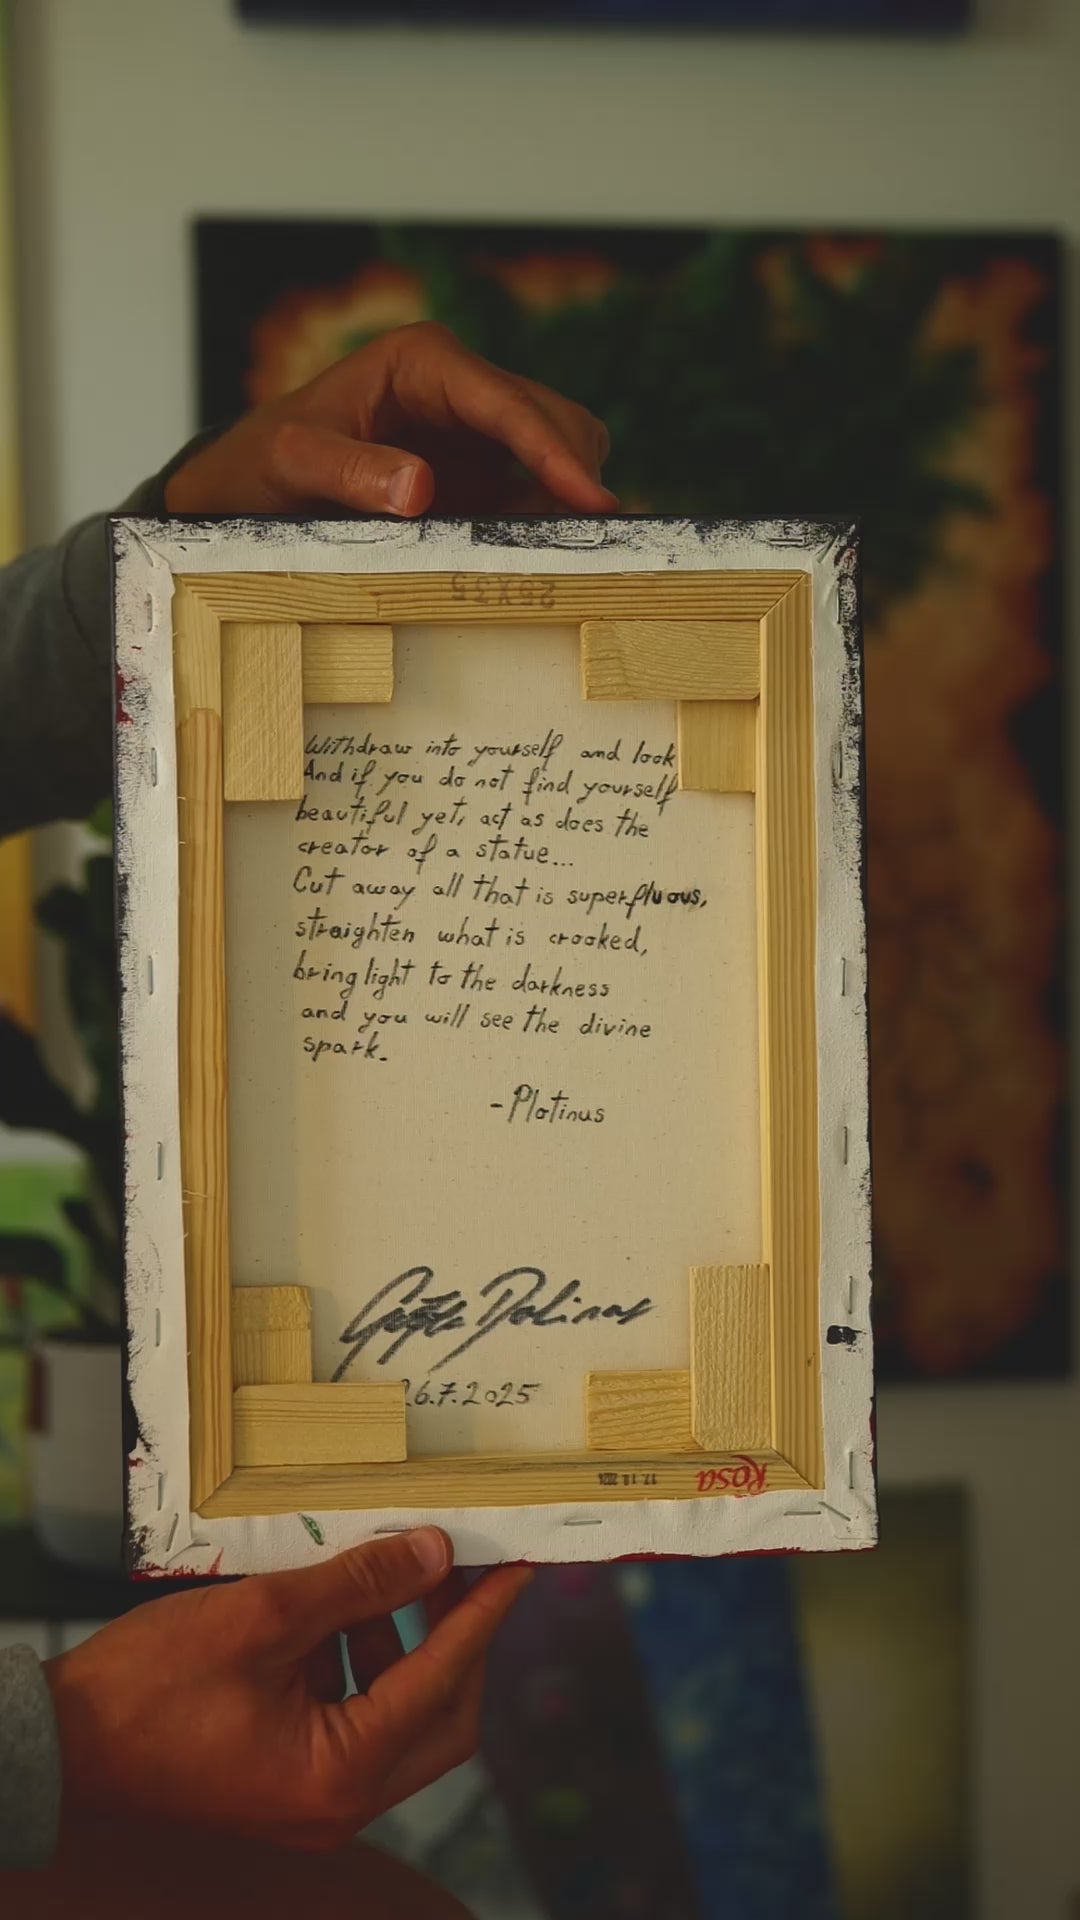 25X35
Withdraw into yourself and look
And if you do not find yourself
beautiful yet, act as does the
creator of a statue...
Cut away all that is superfluous,
straighten what is crooked,
bring light to the darkness
and you will see the divine
spark.
-Plotinus
26.7.2025
Rosa